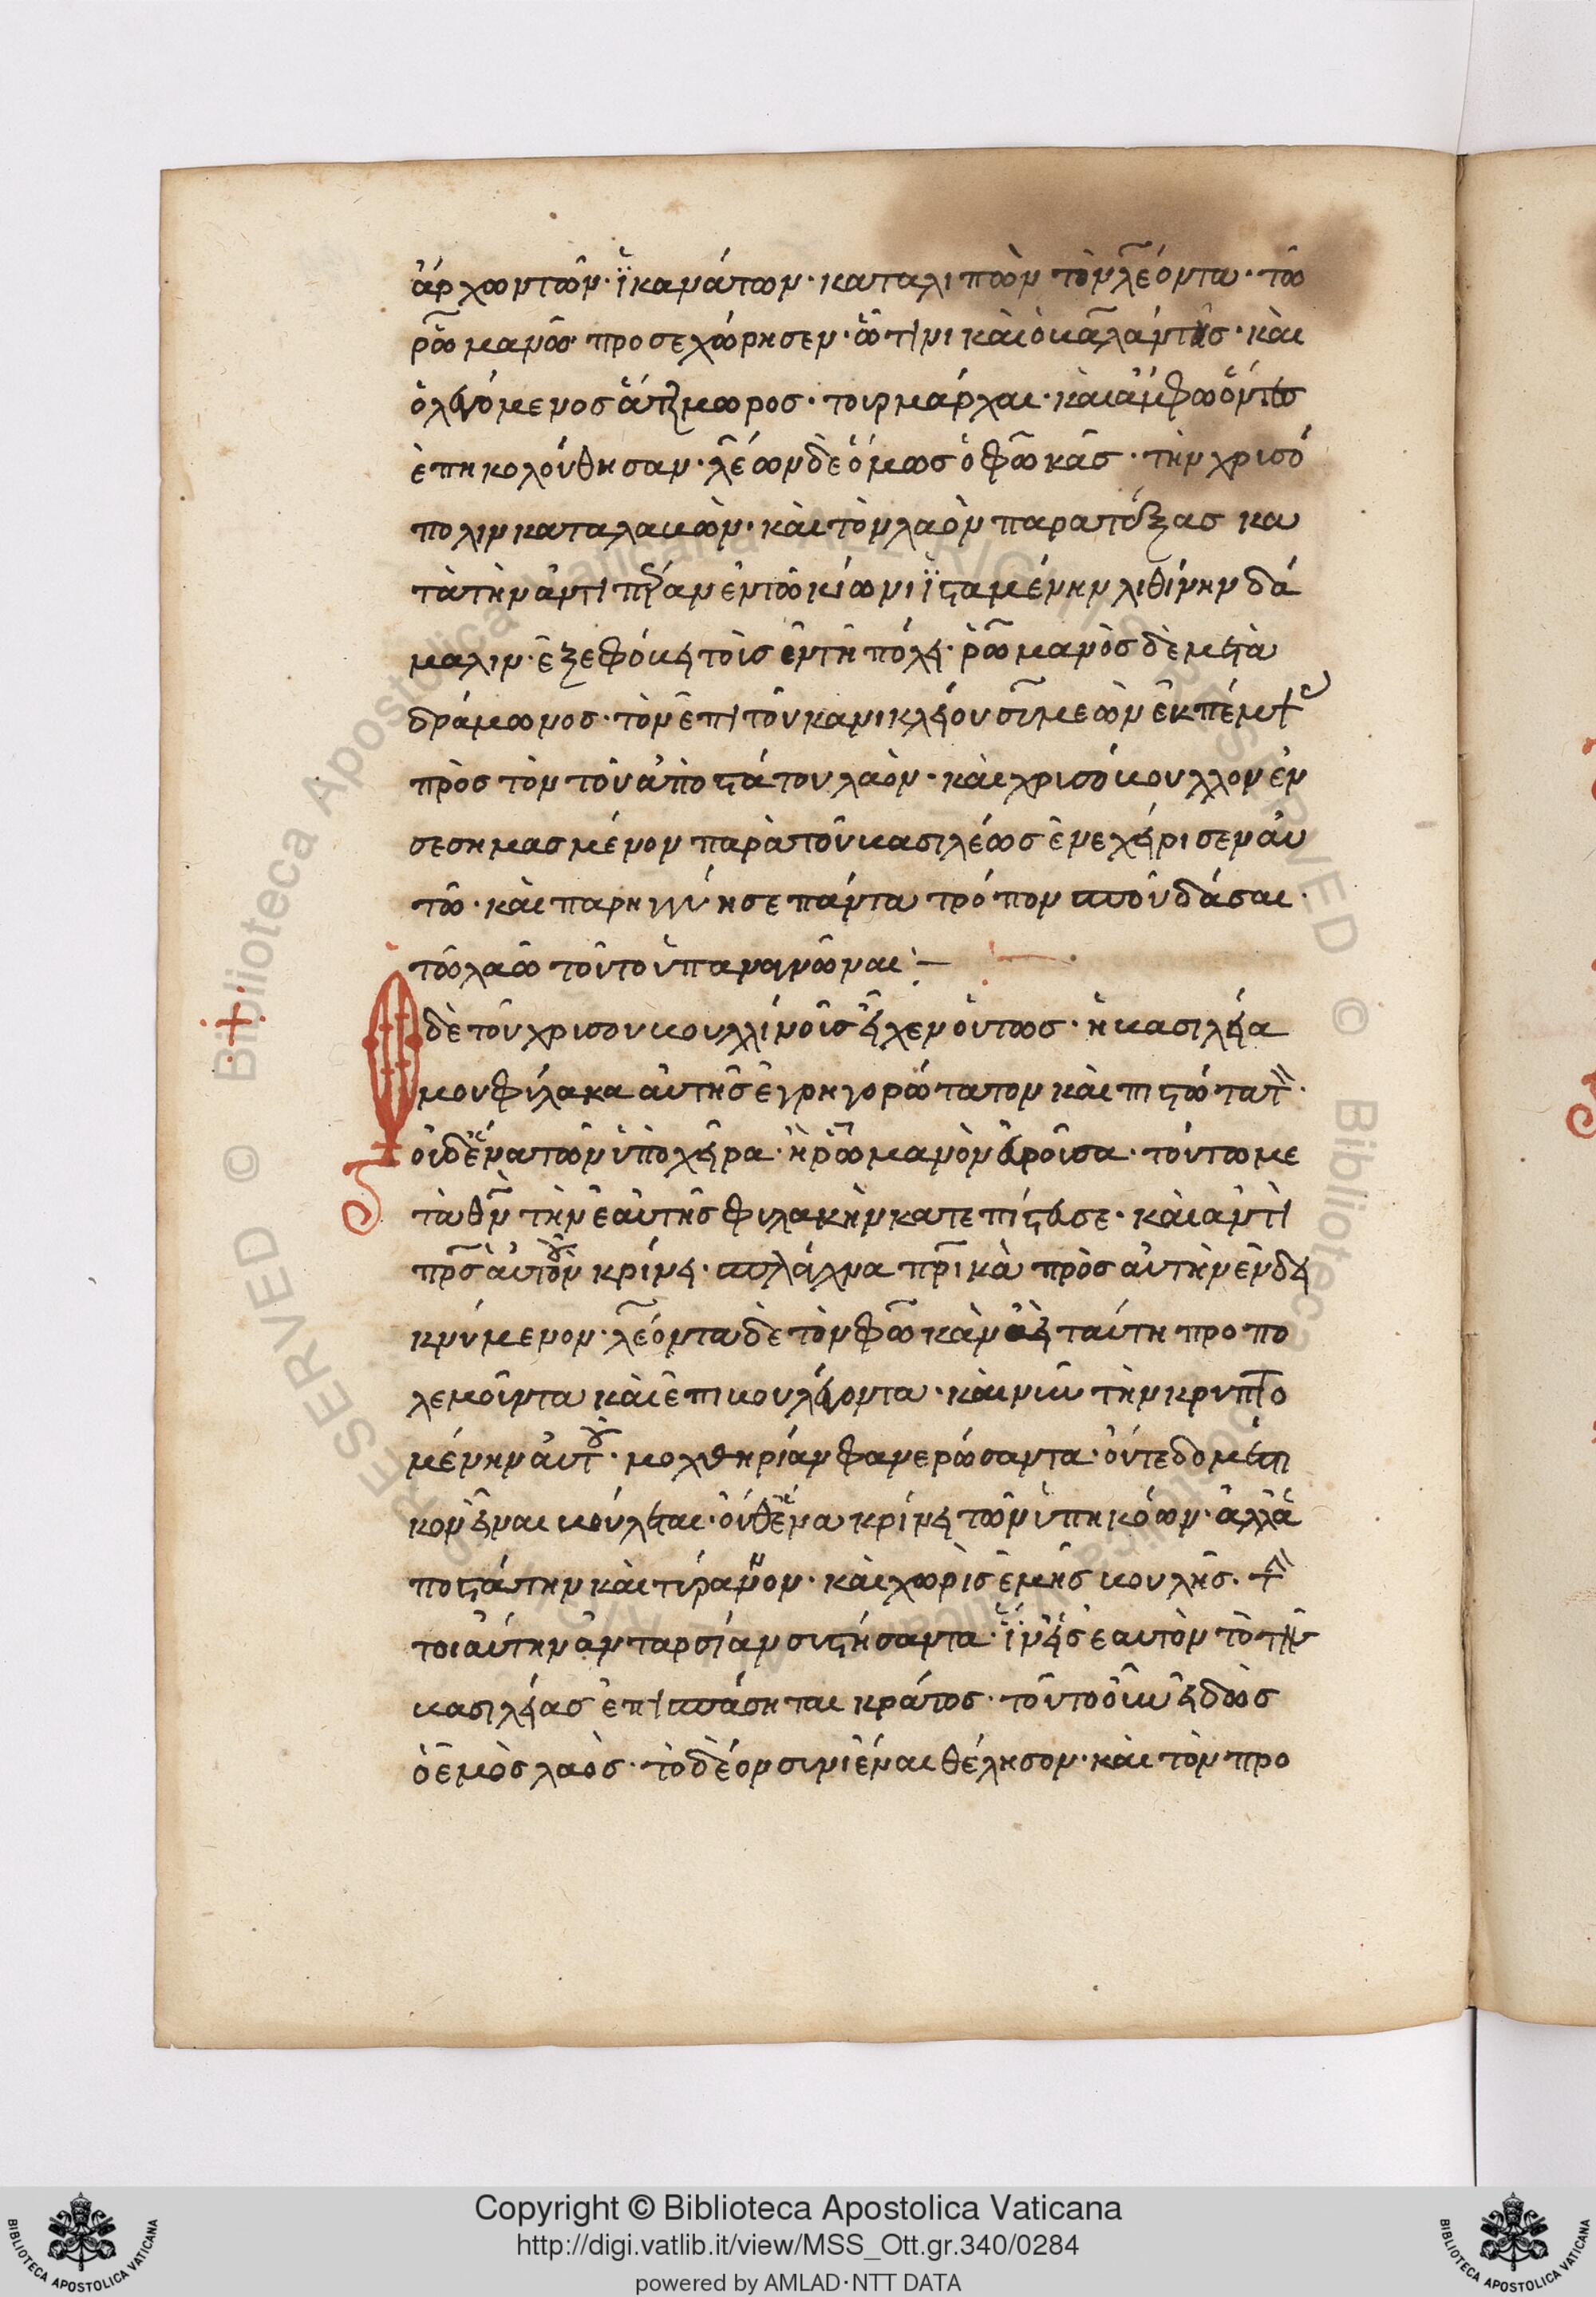 ἀρχωντῶν· ϊκανάτων· καταλιπῶν τὸν λέοντα· τῶ
ῥωμανῶ προσεχώρησεν· ὧ τινι καὶ ὁ βαλάντης· καὶ
ὁ λεγόμενος ἄτζμωρος· τουρμάρχαι· καὶ ἄμφω ὄντες
ἐπηκολούθησαν· λέων δὲ ὅμως ὁ φωκᾶς· τὴν χρισό
πολιν καταλαβὼν· καὶ τὸν λαὸν παρατάξας κα
τὰ τὴν ἀντιπέραν ἐν τῶ κίωνι ϊσταμένην λιθίνην δά
μαλιν· ἐξεφόβει τοῖς ἐν τῆ πόλει· ῥωμανὸς δὲ μετὰ
δράμωνος· τὸν ἐπὶ τοῦ κανικλείου σιμεὼν ἐκπέμψας
πρὸς τὸν τοῦ ἀποστάτου λαὸν· καὶ χρισόβουλλον ἐν
σεσημασμένον παρὰ τοῦ βασιλέως ἐνεχείρισεν αυ
τῶ· καὶ παρηγγύησε πάντα τρόπον σπουδάσαι·
τῶ λαῶ τοῦτο ὑπαναγνῶναι:—
δὲ τοῦ χρισουβουλλίνοις εἶχεν οὕτως· ἡ βασιλεία
μου φύλακα αὐτῆς ἐγρηγορώτατον καὶ πιστώτατον·
οἰδένα τῶν ὑπὸ χεῖρα· ἢ ῥωμανὸν εὑροῦσα· τούτω με
τὰ θν τὴν ἑαυτῆς φυλακὴν κατεπίστευσε· καὶ ἀντὶ
πρς αὐτὸν κρίνει· σπλάχνα πρικὰ πρὸς αὐτὴν ἐνδει
κνύμενον· λέοντα δὲ τὸν φωκὰν ἀεὶ ταύτη προπο
λεμοῦντα καὶ ἐπιβουλεύοντα· καὶ νῦν τὴν κρυπτο
μένην αὐτοῦ· μοχθηρίαν φανερώσαντα· οὔτε δομέστι
κον εἶναι βούλεται· οὔθένα κρίνει τῶν ὑπηκόων· ἀλλὰ
ποστάτην καὶ τύραννον· καὶ χωρὶς ἐμῆς βουλῆς· τὴν
τοιαύτην ἀνταρσίαν συστήσαντα· ϊν εἰς ἑαυτὸν τὸ τῆς
βασιλείας ἐπισπάσηται κράτος· τοῦτο οὖν εἰδὼς
ὁ ἐμὸς λαὸς· τὸ δέον συνιέναι θέλησον· καὶ τὸν προ
Copyright © Biblioteca Apostolica Vaticana
http://digi.vatlib.it/view/MSS_Ott.gr.340/0284
powered by AMLAD·NTT DATA